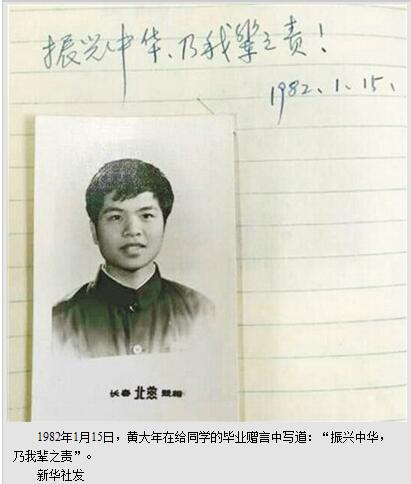 振兴中华、乃我辈之责！
1982.1.15.
长春 北燕 照相
1982年1月15日，黄大年在给同学的毕业赠言中写道：“振兴中华，
乃我辈之责”。
新华社发